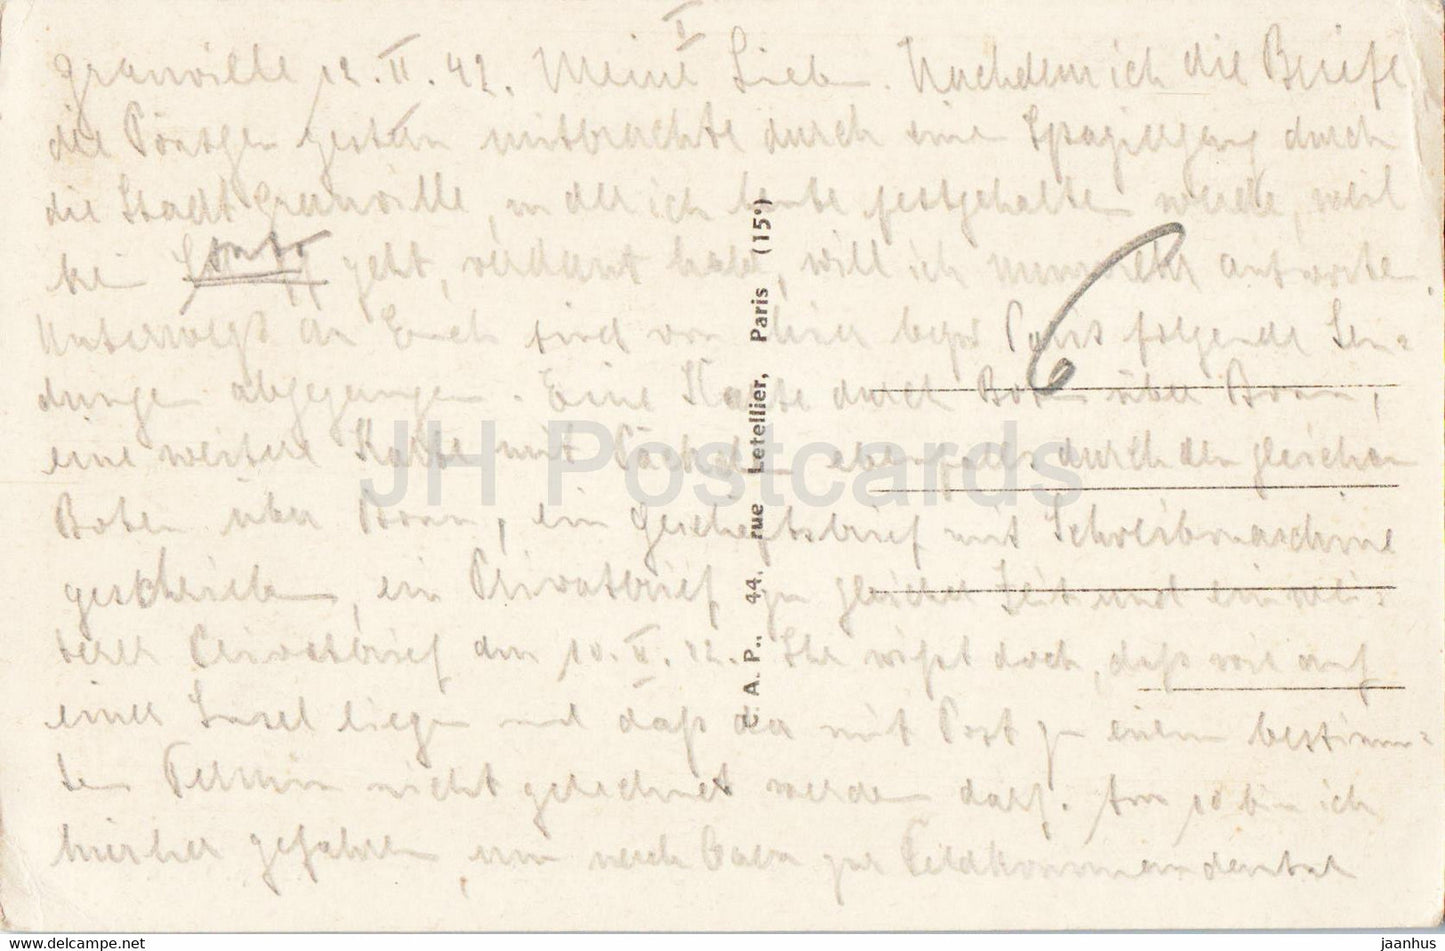 I
Granville 12.II.42. Meine Lieben. Nachdem ich die Briefe
die gestern mitbrachte durch einen Spaziergang durch
die Stadt Granville, in der ich heute festgehalten werde, weil
kein geht, verdaut habe, will ich nunmehr antworten.
Unterwegs an Euch sind von hier bezw Paris folgende Sen=
dungen abgegangen. Eine Karte durch Boten über Bonn,
eine weitere Karte mit Päckchen ebenfalls durch den gleichen
Boten über Bonn, ein Geschäftsbrief mit Schreibmaschine
geschrieben, ein Privatbrief zu gleicher Zeit und ein wei=
terer Privatbrief am 10.II.42. Ihr wißt doch, daß wir auf
einer Insel liegen und daß da mit Post zu einem bestimm=
ten Termin nicht gerechnet werden darf. Am 10 bin ich
hierher gefahren, um nach Caen zur Feldkommandantur
6
C. A. P., 44, rue Letellier, Paris (15e)
JH Postcards
https://www.jhpostcards.com
jaanhus